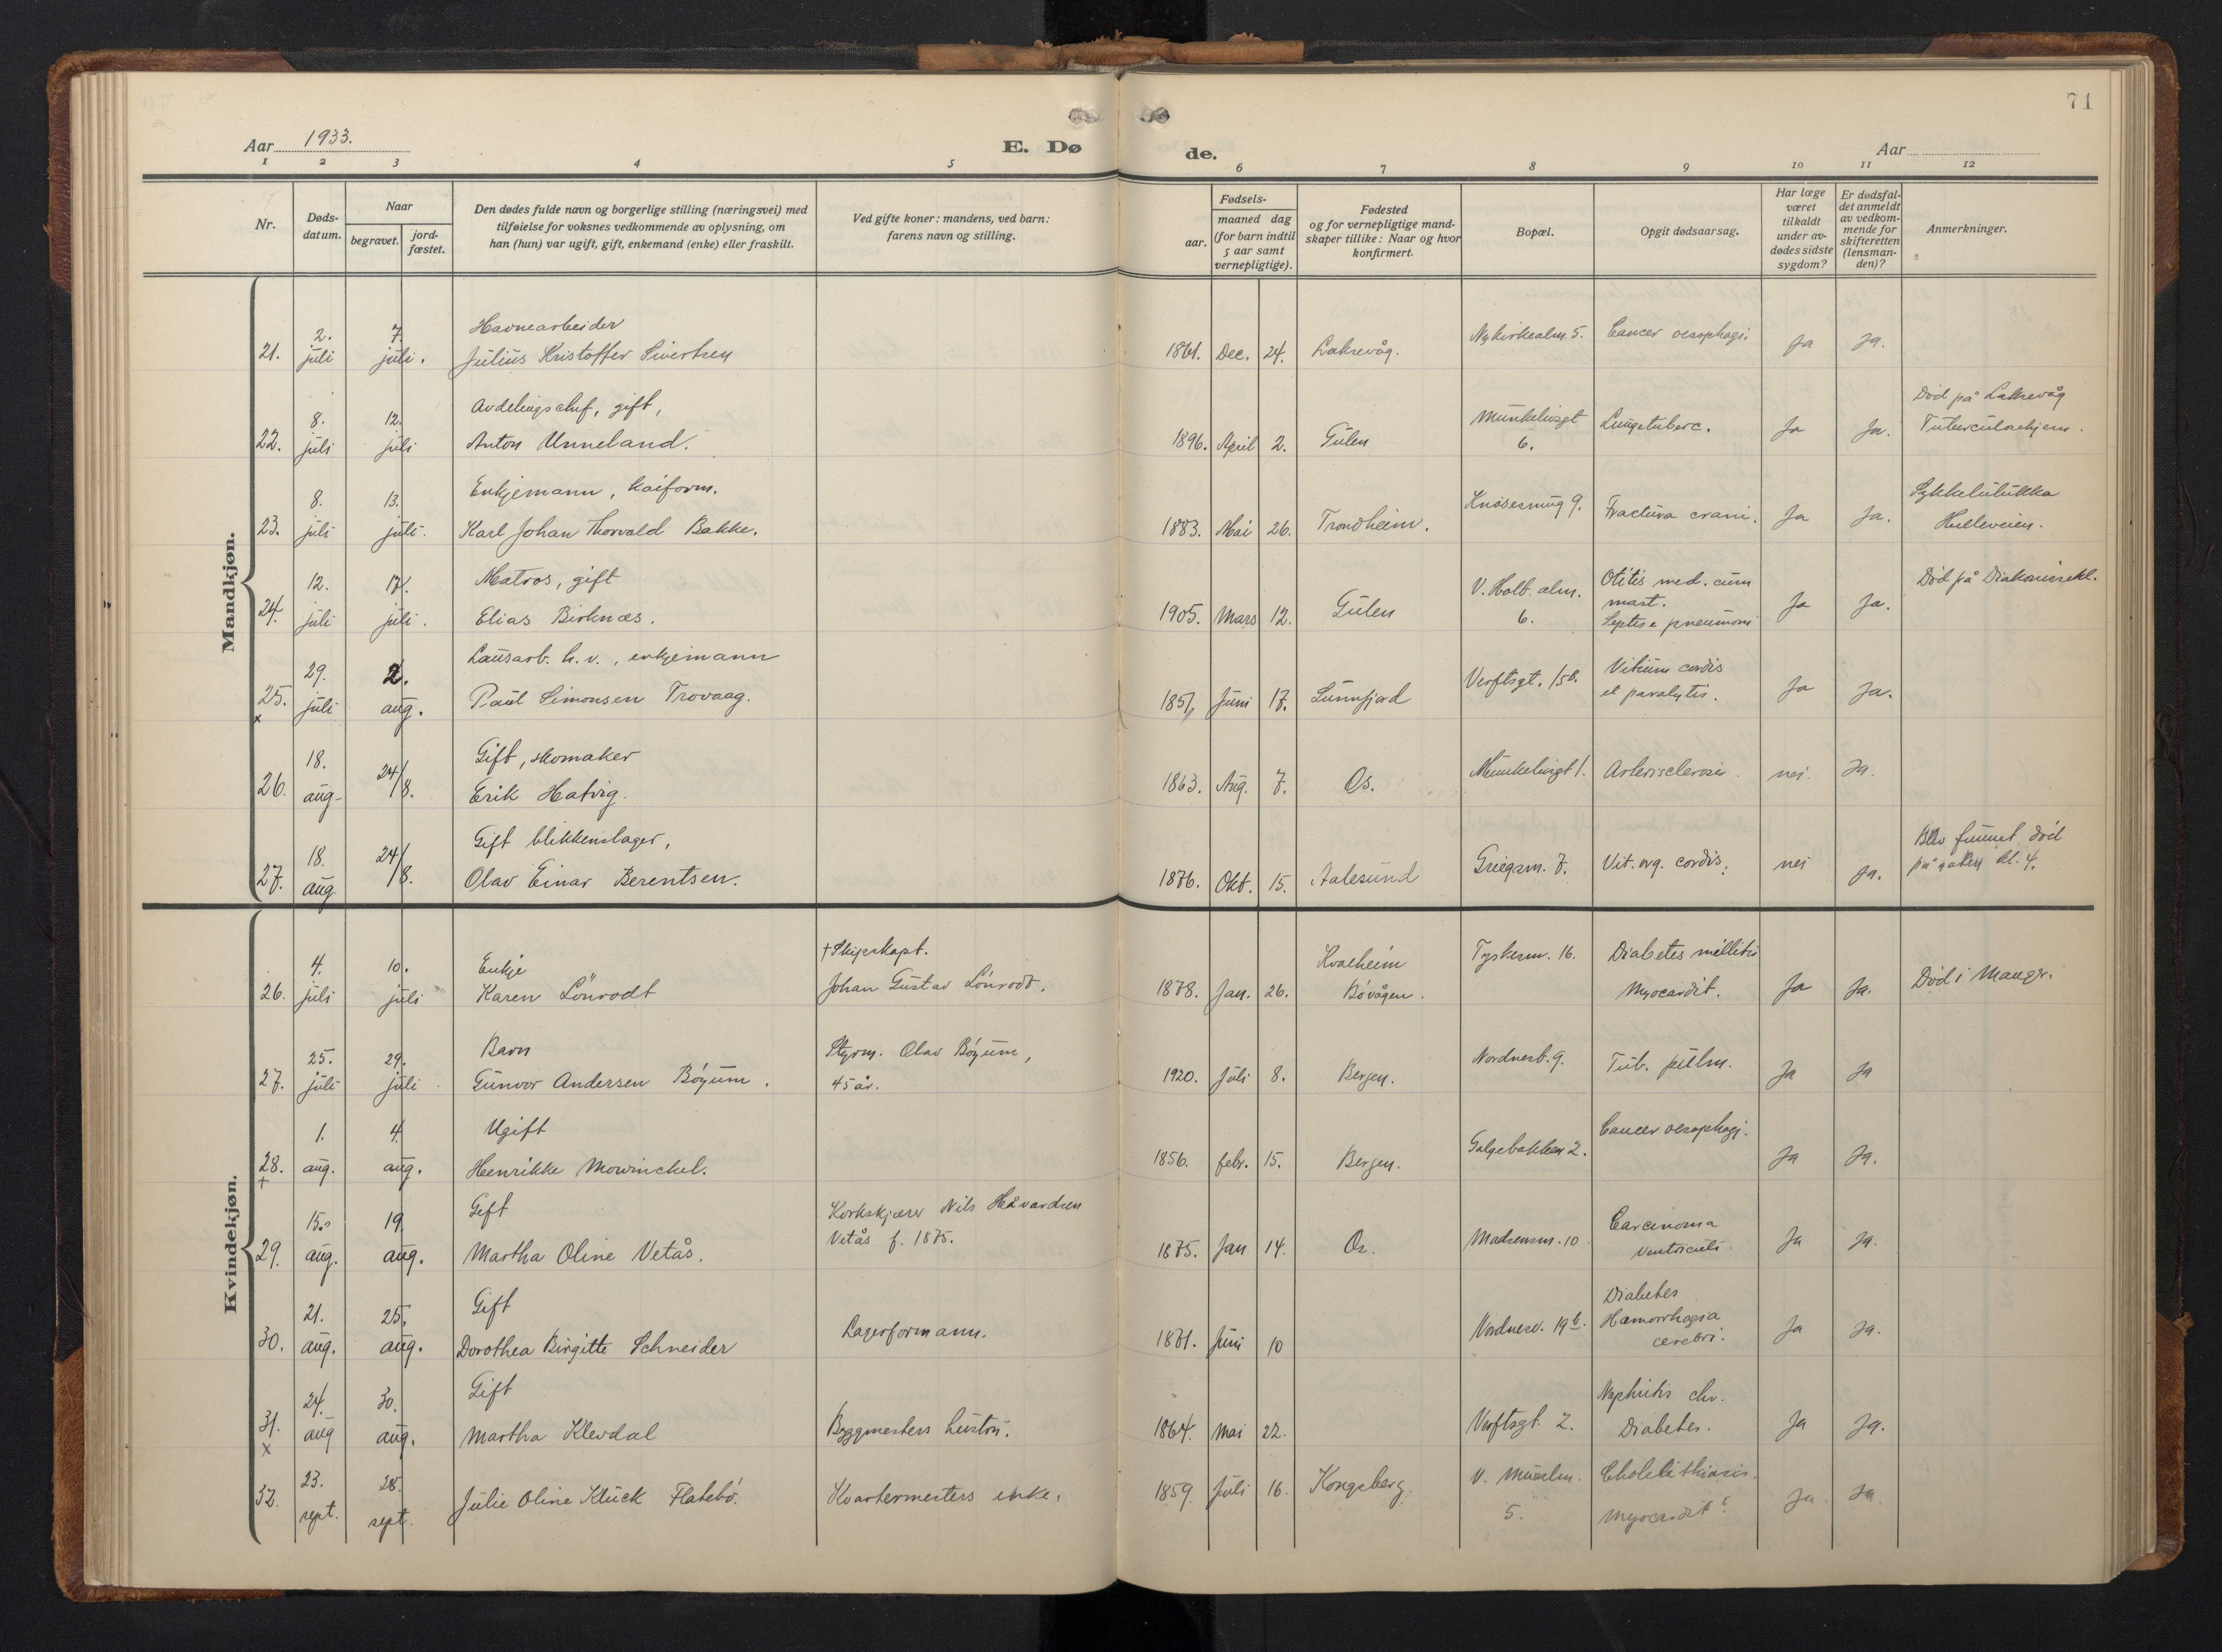 71
Aar 1933.
E. Dø
de.
Aar
1 2 3 4 5 6 7 8 9 10 11 12
Nr.
Døds-
datum.
Naar
begravet.
jord-
fæstet.
Den dødes fulde navn og borgerlige stilling (næringsvei) med
tilføielse for voksnes vedkommende av oplysning, om
han (hun) var ugift, gift, enkemand (enke) eller fraskilt.
Ved gifte koner: mandens, ved barn:
farens navn og stilling.
Fødsels-
aar.
maaned dag
(for barn indtil
5 aar samt
vernepligtige).
Fødested
og for vernepligtige mand-
skaper tillike: Naar og hvor
konfirmert.
Bopæl.
Opgit dødsaarsag.
Har læge
været
tilkaldt
under av-
dødes sidste
sygdom?
Er dødsfal-
det anmeldt
av vedkom-
mende for
skifteretten
(lensman-
den)?
Anmerkninger.
Mandkjøn.
2. 7. Havnearbeider Nykirkealm. 5. Cancer oesophagi.
21. juli juli. Julius Kristoffer Sivertsen 1861. Dec. 24. Laksevåg. Ja Ja.
8. 12. Avdelingschef, gift, Munkelivsgt Lungetuberc. Død på Laksevåg
22. juli juli Anton Unneland. 1896. April 2. Gulen 6. Ja Ja. Tuberculosehjem.
8. 13. Enkjemann, kaiform. Knøsesmug 9. Fractura crani.
23. juli juli. Karl Johan Thorvald Bakke. 1883. Mai 26. Trondheim. Ja Ja. Helleveien.
12. 17. Matros, gift V. Holb. alm. Otitis med. cum Død på Diakonissehl.
mast.
24. juli juli. Elias Birknes. 1905. Mars 12. Gulen 6. Ja Ja.
29. 2. Lausarb. h.v., enkjemann Verftsgt. 15b. Vitium cordis
25. juli aug. Paul Simonsen Trovaag. 1851, Juni 17. Sunnfjord et paralytis. Ja Ja.
x
18. 24/8. Gift, skomaker Munkelivsgt 1. Arteriosclerosis. nei. Ja.
26. aug. Erik Hatvig. 1863. Aug. 7. Os.
18. 24/8. Gift blikkenslager, Blev funnet død
27. aug Olav Einar Berentsen. 1876. Okt. 15. Aalesund Griegsm. 7. Vit. org. cordis. nei Ja. på gaten kl. 4.
Kvindekjøn.
4. 10. Enkje †Skipskapt. Kvalheim Tyskesm. 16. Diabetes mellitis
26. juli juli Karen Lönrodt Johan Gustav Lönrodt. 1878. Jan. 26. Bövågen. Myocardit. Ja Ja. Død i Manger.
25. 29. Barn Styrm. Olav Böyum, Nordnesb. 9. Tub. pulm.
27. juli juli. Gunvor Andersen Böyum. 45 år. 1920. Juli 8. Bergen. Ja Ja
1. 4. Ugift Galgebakken 2. Cancer oesophagi.
28. aug. aug. Henrikke Mowinckel. 1856. febr. 15. Bergen. Ja Ja.
+
15. 19. Gift Korkskjærer Nils Håvardsen Carcinoma
29. aug. aug. Martha Oline Vetås. Vetås f. 1875. 1875. Jan 14. Os. Madsensm. 10. Ventriculi. Ja Ja.
21. 25. Gift Lagerformann. Diabetes
Hæmorrhagia
30. aug. aug. Dorothea Birgitte Schneider 1871. Juni 10 Nordnesv. 19b. cerebri. Ja Ja.
24. 30. Gift Nephritis chr.
31. aug aug. Martha Klevdal Byggmesters hustru. 1864. Mai 22. Verftsgt. 2. Diabetes. Ja Ja.
x
23. 28. V. Muralm. Cholelithiasis.
32. sept. sept. Julie Oline Klück Flatebö. Kvartermesters enke. 1859. Juli 16. Kongsberg. 5. Myocardit. Ja. Ja.